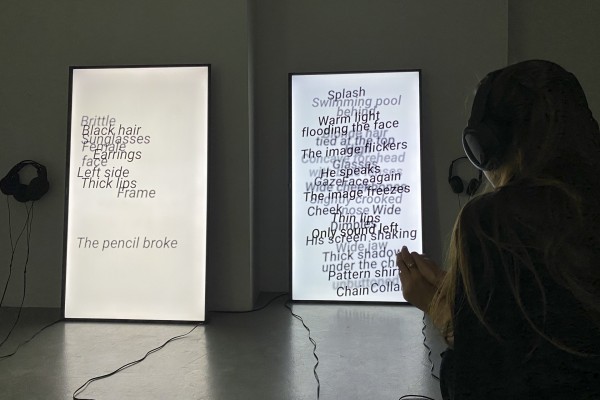 Brittle
Black hair
Sunglasses
Female
Earrings
face
Left side
Thick lips
Frame
The pencil broke
Splash
Swimming pool
behind
Warm light
flooding the face
hair
tied at the top
The image flickers
Concave forehead
Glasses
He speaks
Gaze Face again
Wide cheekbones
The image freezes
slightly crooked
Cheek nose Wide
Thin lips
Dimples
Only sound left
His screen shaking
Wide jaw
Thick shadow
under the chin
Pattern shirt
unbuttoned
Chain Collar